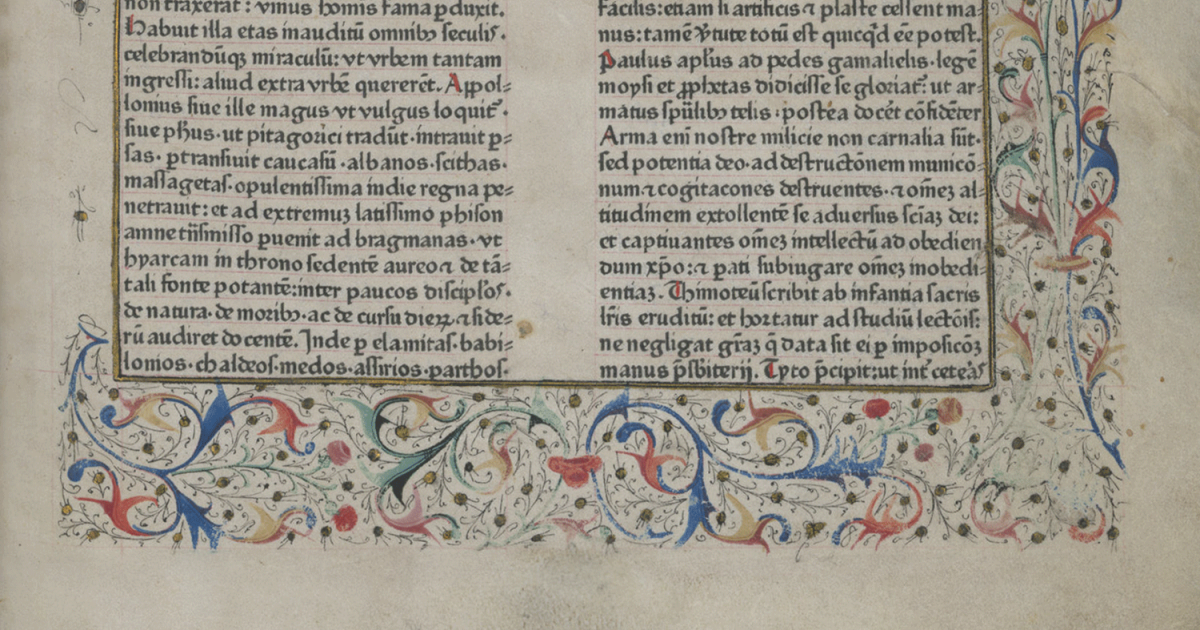 non traxerat : vnius homis fama ꝑduxit.
Habuit illa etas inauditū omnibꝫ seculis·
celebrandūqꝫ miraculū: vt vrbem tantam
ingressi: aliud extra vrbē quererēt. Apol⸗
lonius siue ille magus vt vulgus loquit᷑·
siue ph̄us· ut pitagorici tradūt· intrauit ꝑ⸗
sas· ꝑtransiuit caucasū· albanos· scithas·
massagetas· opulentissima indie regna pe⸗
netrauit: et ad extremuꝫ latissimo phison
amne trāsmisso ꝑuenit ad bragmanas· vt
hyarcam in throno sedentē aureo ⁊ de tā⸗
tali fonte potantē: inter paucos discipl̓os·
de natura· de moribꝫ· ac de cursu dieꝝ ⁊ side⸗
rū audiret docentē. Inde ꝑ elamitas· babi⸗
lonios· chaldeos· medos· assirios· parthos·
facilis: etiam li artificis ⁊ plaste cessent ma⸗
nus: tamē v̓tute totū est quicq̇d ēe potest.
Paulus apl̓us ad pedes gamalielis· legē
moysi et ꝓphetas didicisse se gloriat᷑: ut ar⸗
matus spūlibꝫ telis : postea docēt cōfidēter
Arma eni nostre milicie non carnalia sūt·
sed potentia deo· ad destructōnem municō⸗
num ⁊ cogitacones destruentes· ⁊ om̄eꝫ al⸗
titudinem extollentē se aduersus sciāꝫ dei:
et captiuantes om̄eꝫ intellectū ad obedien⸗
dum xp̄o: ⁊ ꝑati subiugare om̄eꝫ inobedi⸗
entiaꝫ. Thimoteū scribit ab infantia sacris
lr̄is eruditū: et hortatur ad studiū lectōis:
ne negligat gr̄aꝫ q̄ data sit ei ꝑ imposicōꝫ
manus p̄sbiterij. Tyto p̄cipit: ut int̓ ceteās